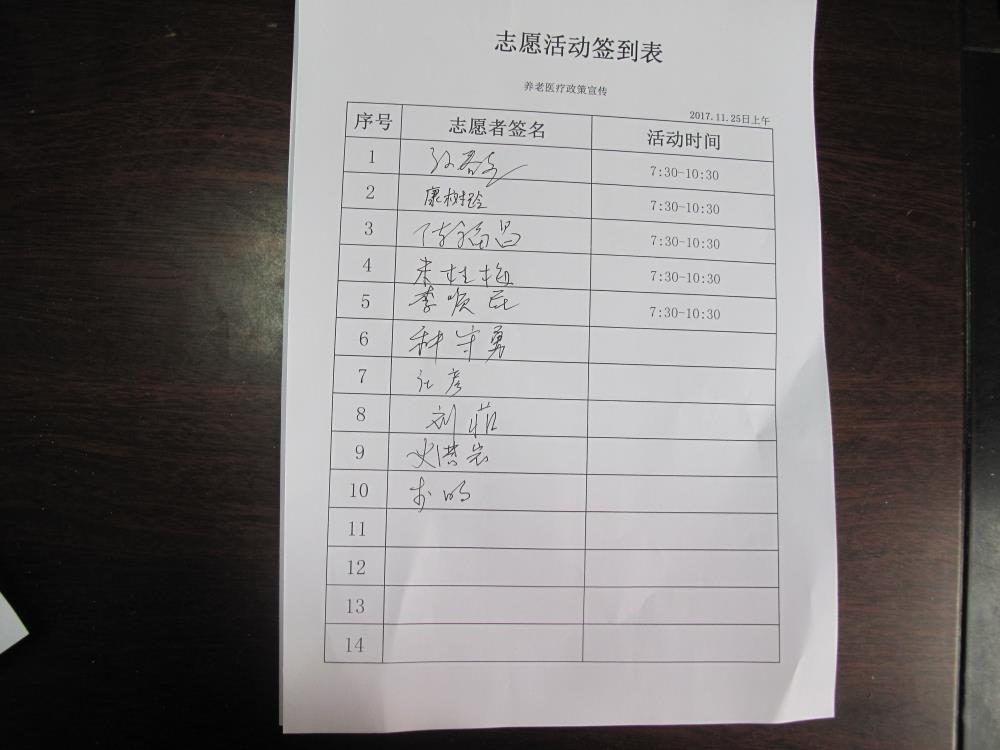 志愿活动签到表
养老医疗政策宣传
2017.11.25日上午
序号 志愿者签名 活动时间
1 7:30-10:30
2 康树玲 7:30-10:30
3 陈福昌 7:30-10:30
4 朱桂梅 7:30-10:30
5 李顺 7:30-10:30
6 种守勇
7 江彦
8 刘茹
9 史洪岩
10 李明
11
12
13
14